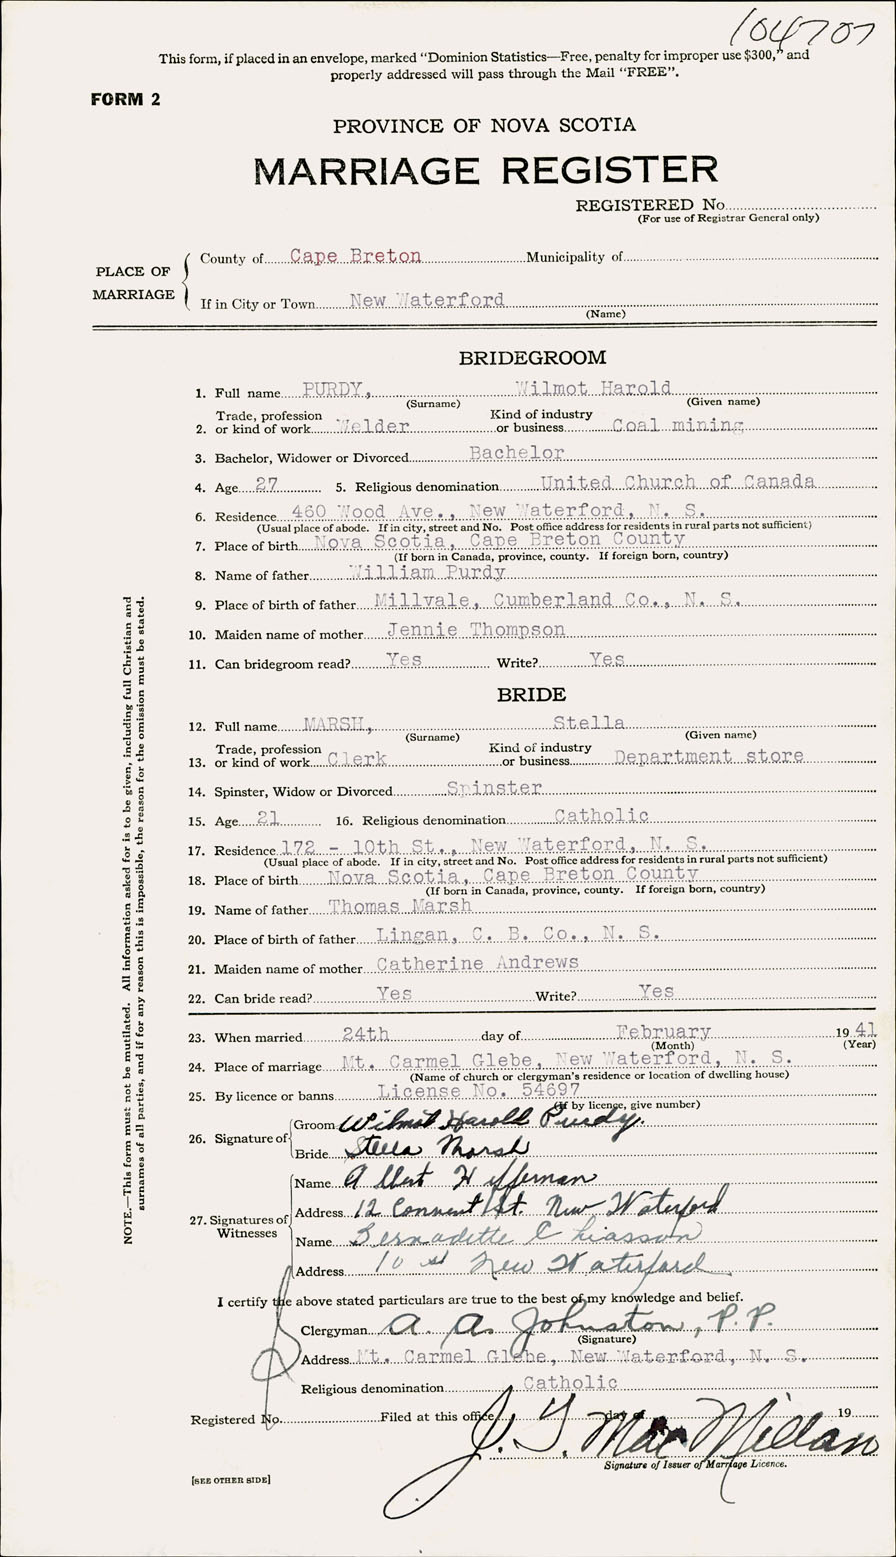 104707
This form, if placed in an envelope, marked “Dominion Statistics—Free, penalty for improper use $300,” and
properly addressed will pass through the Mail “FREE”.
FORM 2
PROVINCE OF NOVA SCOTIA
MARRIAGE REGISTER
REGISTERED No.
(For use of Registrar General only)
PLACE OF MARRIAGE
County of Cape Breton Municipality of
If in City or Town New Waterford
(Name)
BRIDEGROOM
1. Full name PURDY, Wilmot Harold
(Surname) (Given name)
2. Trade, profession or kind of work Welder Kind of industry or business Coal mining
3. Bachelor, Widower or Divorced Bachelor
4. Age 27 5. Religious denomination United Church of Canada
6. Residence 460 Wood Ave., New Waterford, N. S.
(Usual place of abode. If in city, street and No. Post office address for residents in rural parts not sufficient)
7. Place of birth Nova Scotia, Cape Breton County
(If born in Canada, province, county. If foreign born, country)
8. Name of father William Purdy
9. Place of birth of father Millvale, Cumberland Co., N. S.
10. Maiden name of mother Jennie Thompson
11. Can bridegroom read? Yes Write? Yes
BRIDE
12. Full name MARSH, Stella
(Surname) (Given name)
13. Trade, profession or kind of work Clerk Kind of industry or business Department store
14. Spinster, Widow or Divorced Spinster
15. Age 21 16. Religious denomination Catholic
17. Residence 172 - 10th St., New Waterford, N. S.
(Usual place of abode. If in city, street and No. Post office address for residents in rural parts not sufficient)
18. Place of birth Nova Scotia, Cape Breton County
(If born in Canada, province, county. If foreign born, country)
19. Name of father Thomas Marsh
20. Place of birth of father Lingan, C. B. Co., N. S.
21. Maiden name of mother Catherine Andrews
22. Can bride read? Yes Write? Yes
23. When married 24th day of February 1941
(Month) (Year)
24. Place of marriage Mt. Carmel Glebe, New Waterford, N. S.
(Name of church or clergyman's residence or location of dwelling house)
25. By licence or banns License No. 54697
(If by licence, give number)
26. Signature of
Groom Wilmot Harold Purdy.
Bride Stella Marsh
27. Signatures of Witnesses
Name Albert Heffernan
Address 12 Convent St. New Waterford
Name Bernadette Chiasson
Address 10 st New Waterford
I certify the above stated particulars are true to the best of my knowledge and belief.
Clergyman A. A. Johnston, P.P.
(Signature)
Address Mt. Carmel Glebe, New Waterford, N. S.
Religious denomination Catholic
Registered No. Filed at this office day of 19
J. G. MacMillan
Signature of Issuer of Marriage Licence.
[SEE OTHER SIDE]
NOTE.—This form must not be mutilated. All information asked for is to be given, including full Christian and
surnames of all parties, and if for any reason this is impossible, the reason for the omission must be stated.